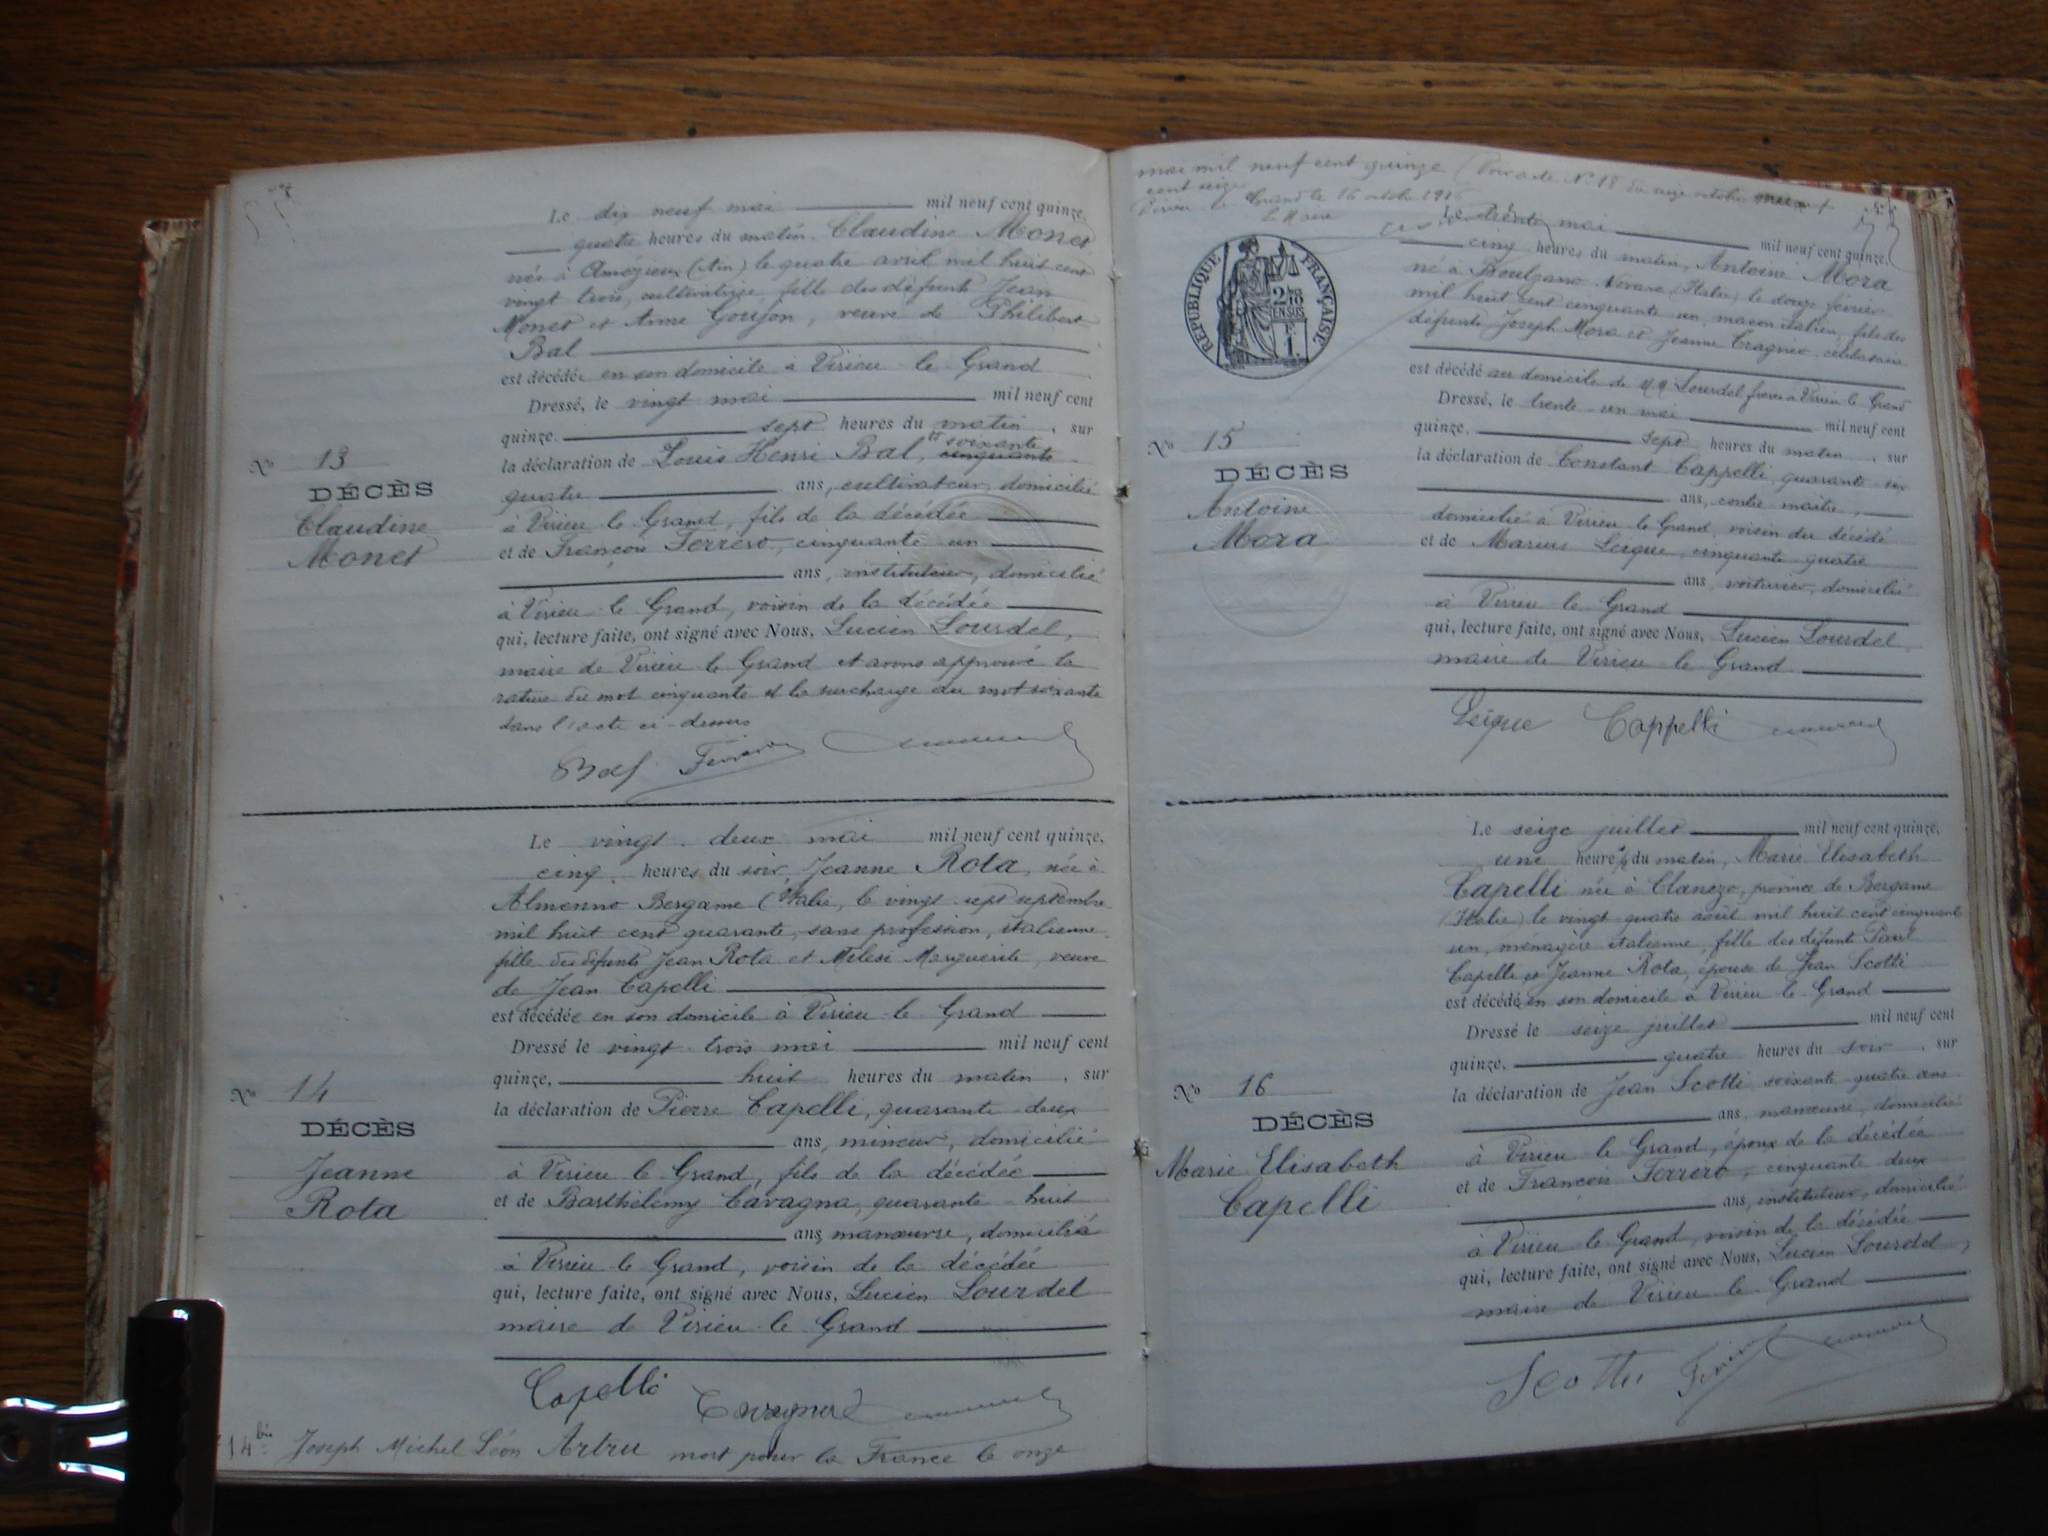 Le dix neuf mai mil neuf cent quinze,
quatre heures du matin Claudine Monet
née à Amézieux (Ain) le quatre avril mil huit cent
vingt trois, cultivatrice, fille des défunts Jean
Monet et Anne Goujon, veuve de Philibert
Bal
est décédée en son domicile à Virieu-le-Grand
Dressé, le vingt mai mil neuf cent
quinze, sept heures du matin, sur
la déclaration de Louis Henri Bal, cinquante soixante
quatre ans, cultivateur, domicilié
à Virieu-le-Grand, fils de la décédée
et de François Ferrero, cinquante-un
ans, instituteur, domicilié
à Virieu-le-Grand, voisin de la décédée
qui, lecture faite, ont signé avec Nous, Lucien Lourdel,
maire de Virieu-le-Grand et avons approuvé la
rature du mot cinquante et la surcharge du mot soixante
dans l'acte ci-dessus
Bal Ferrero
No 13
DÉCÈS
Claudine
Monet
Le vingt-deux mai mil neuf cent quinze,
cinq heures du soir, Jeanne Rota, née à
Almenno Bergame (Italie, le vingt-sept septembre
mil huit cent quarante, sans profession, italienne
fille des défunts Jean Rota et Milesi Marguerite, veuve
de Jean Capelli
est décédée en son domicile à Virieu-le-Grand
Dressé le vingt-trois mai mil neuf cent
quinze, huit heures du matin, sur
la déclaration de Pierre Capelli, quarante-deux
ans, mineur, domicilié
à Virieu-le-Grand, fils de la décédée
et de Barthélemy Cavagna, quarante-huit
ans, manœuvre, domicilié
à Virieu-le-Grand, voisin de la décédée
qui, lecture faite, ont signé avec Nous, Lucien Lourdel
maire de Virieu-le-Grand
Capelli Cavagna
No 14
DÉCÈS
Jeanne
Rota
14 bis Joseph Michel Léon Artru mort pour la France le onze
mai mil neuf cent quinze (Voir acte No 18 du seize octobre
cent seize
Virieu-le-Grand le 16 octobre 1916
Le Maire
RÉPUBLIQUE FRANÇAISE
2/10
EN SUS
F.
1.
Le trente mai mil neuf cent quinze,
cinq heures du matin, Antoine Mora
né à Novare (Italie) le douze février
mil huit cent cinquante un, maçon italien, fils des
défunts Joseph Mora et Jeanne célibataire
est décédé au domicile de MM Lourdel frères à Virieu-le-Grand
Dressé, le trente-un mai mil neuf cent
quinze, sept heures du matin, sur
la déclaration de Constant Cappelli, quarante-six
ans, contre-maître,
domicilié à Virieu-le-Grand, voisin du décédé
et de Marius Leique, cinquante-quatre
ans, voiturier, domicilié
à Virieu-le-Grand
qui, lecture faite, ont signé avec Nous, Lucien Lourdel,
maire de Virieu-le-Grand
Leique Cappelli
No 15
DÉCÈS
Antoine
Mora
Le seize juillet mil neuf cent quinze,
une heure du matin, Marie Elisabeth
Capelli née à Clanezo, province de Bergame
(Italie) le vingt-quatre août mil huit cent cinquante
un, ménagère italienne, fille des défunts Paul
Capelli et Jeanne Rota, épouse de Jean Scotti
est décédé en son domicile à Virieu-le-Grand
Dressé le seize juillet mil neuf cent
quinze, quatre heures du soir, sur
la déclaration de Jean Scotti, soixante-quatre ans
ans, manœuvre, domicilié
à Virieu-le-Grand, époux de la décédée
et de François Ferrero, cinquante-deux
ans, instituteur, domicilié
à Virieu-le-Grand, voisin de la décédée
qui, lecture faite, ont signé avec Nous, Lucien Lourdel,
maire de Virieu-le-Grand
Scotti Ferrero
No 16
DÉCÈS
Marie Elisabeth
Capelli